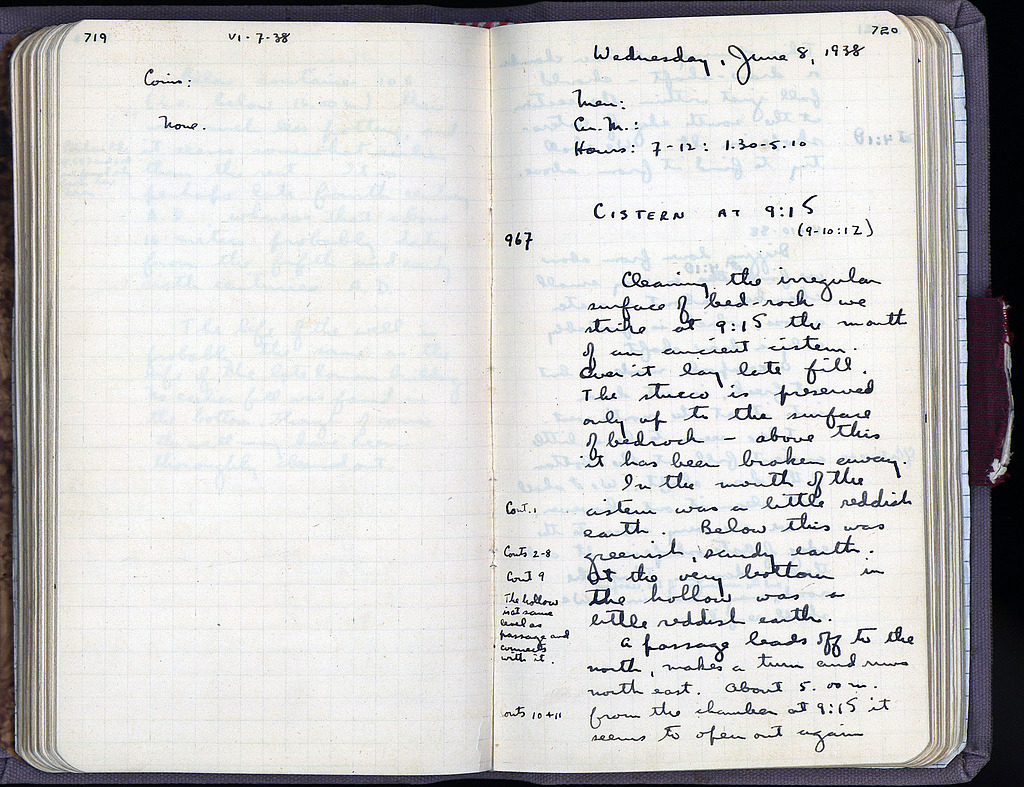 719
VI-7-38
Coins:
None.
720
Wednesday, June 8, 1938
Men:
Cu. M.:
Hours: 7-12: 1.30-5.10
CISTERN AT 9:15
(9-10:12)
967
Cleaning the irregular
surface of bed-rock we
strike at 9:15 the mouth
of an ancient cistern.
Over it lay late fill.
The stucco is preserved
only up to the surface
of bedrock – above this
it has been broken away.
In the mouth of the
Cont. 1
cistern was a little reddish
earth. Below this was
Conts 2-8
greenish, sandy earth.
Cont 9
At the very bottom in
The hollow
is at same
level as
passage and
connects
with it.
the hollow was a
little reddish earth.
A passage leads off to the
north, makes a turn and runs
north east. About 5.00 m.
onts 10+11
from the chamber at 9:15 it
seems to open out again